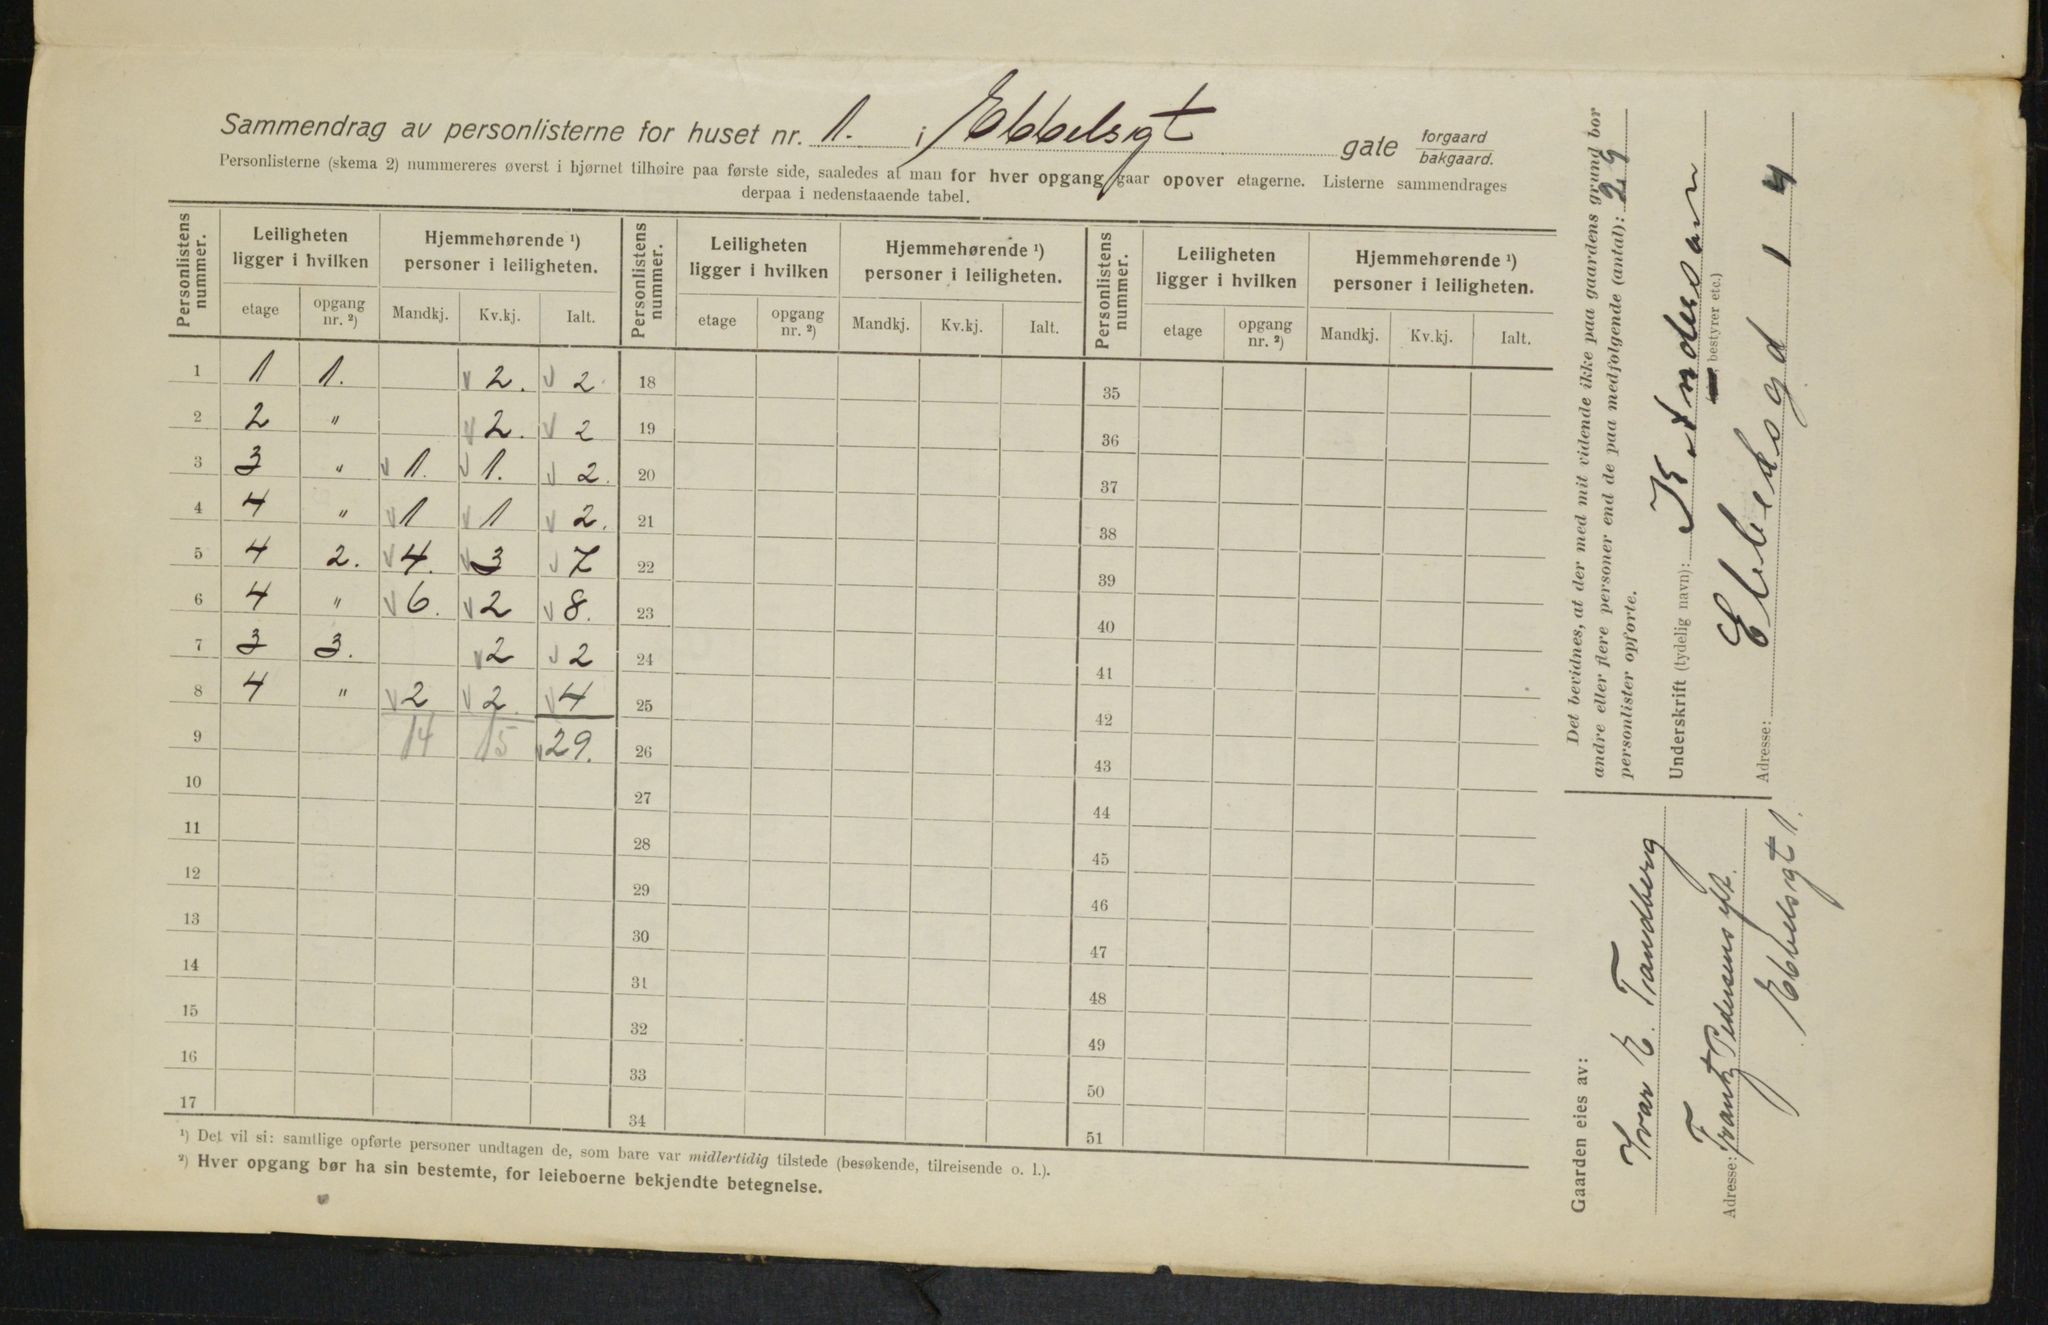 Sammendrag av personlisterne for huset nr. 1. i Ebbelsgt gate forgaard bakgaard.
Personlisterne (skema 2) nummereres øverst i hjørnet tilhøire paa første side, saaledes at man for hver opgang gaar opover etagerne. Listerne sammendrages
derpaa i nedenstaaende tabel.
Personlistens nummer. Leiligheten ligger i hvilken Hjemmehørende ¹) personer i leiligheten. Personlistens nummer. Leiligheten ligger i hvilken Hjemmehørende ¹) personer i leiligheten. Personlistens nummer. Leiligheten ligger i hvilken Hjemmehørende ¹) personer i leiligheten.
etage opgang nr. ²) Mandkj. Kv.kj. Ialt. etage opgang nr. ²) Mandkj. Kv.kj. Ialt. etage opgang nr. ²) Mandkj. Kv.kj. Ialt.
1 1 1. 2. 2. 18 35
2 2 " 2. 2 19 36
3 3 " 1. 1. 2. 20 37
4 4 " 1 1 2. 21 38
5 4 2. 4. 3 7 22 39
6 4 " 6. 2 8. 23 40
7 3 3. 2 2 24 41
8 4 " 2 2. 4 25 42
9 14 15 29. 26 43
10 27 44
11 28 45
12 29 46
13 30 47
14 31 48
15 32 49
16 33 50
17 34 51
¹) Det vil si: samtlige opførte personer undtagen de, som bare var midlertidig tilstede (besøkende, tilreisende o. l.).
²) Hver opgang bør ha sin bestemte, for leieboerne bekjendte betegnelse.
Det bevidnes, at der med mit vidende ikke paa gaardens grund bor
andre eller flere personer end de paa medfølgende (antal): 29
personlister opførte.
Underskrift (tydelig navn): K Anderson
bestyrer etc.)
Adresse: Ebbelsgd 1 4
Gaarden eies av:
Ivar E. Trandberg
Adresse: Frantz Pedersens eft.
Ebbelsgt 1.